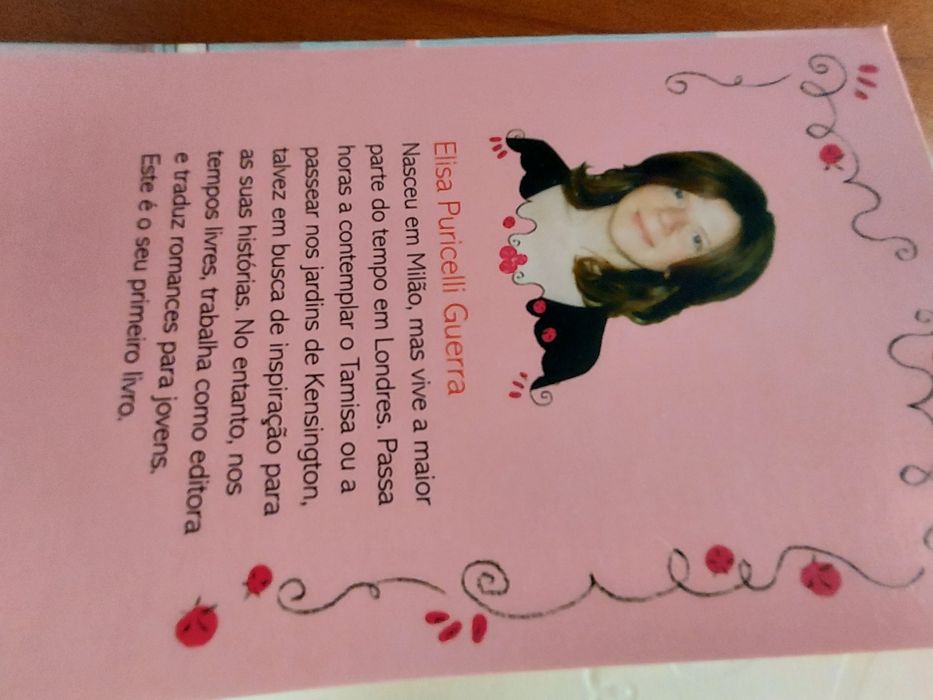 Elisa Puricelli Guerra
Nasceu em Milão, mas vive a maior
parte do tempo em Londres. Passa
horas a contemplar o Tamisa ou a
passear nos jardins de Kensington,
talvez em busca de inspiração para
as suas histórias. No entanto, nos
tempos livres, trabalha como editora
e traduz romances para jovens.
Este é o seu primeiro livro.